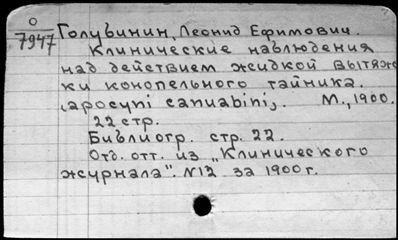 О
7947
Голубинин, Леонид Ефимович.
Клинические наблюдения
над действием жидкой вытяж-
ки конопельного тайника.
(apocyni canuabini). М., 1900.
22 стр.
Библиогр. стр. 22.
Отд. отт. из „Клинического
журнала". N12 за 1900 г.